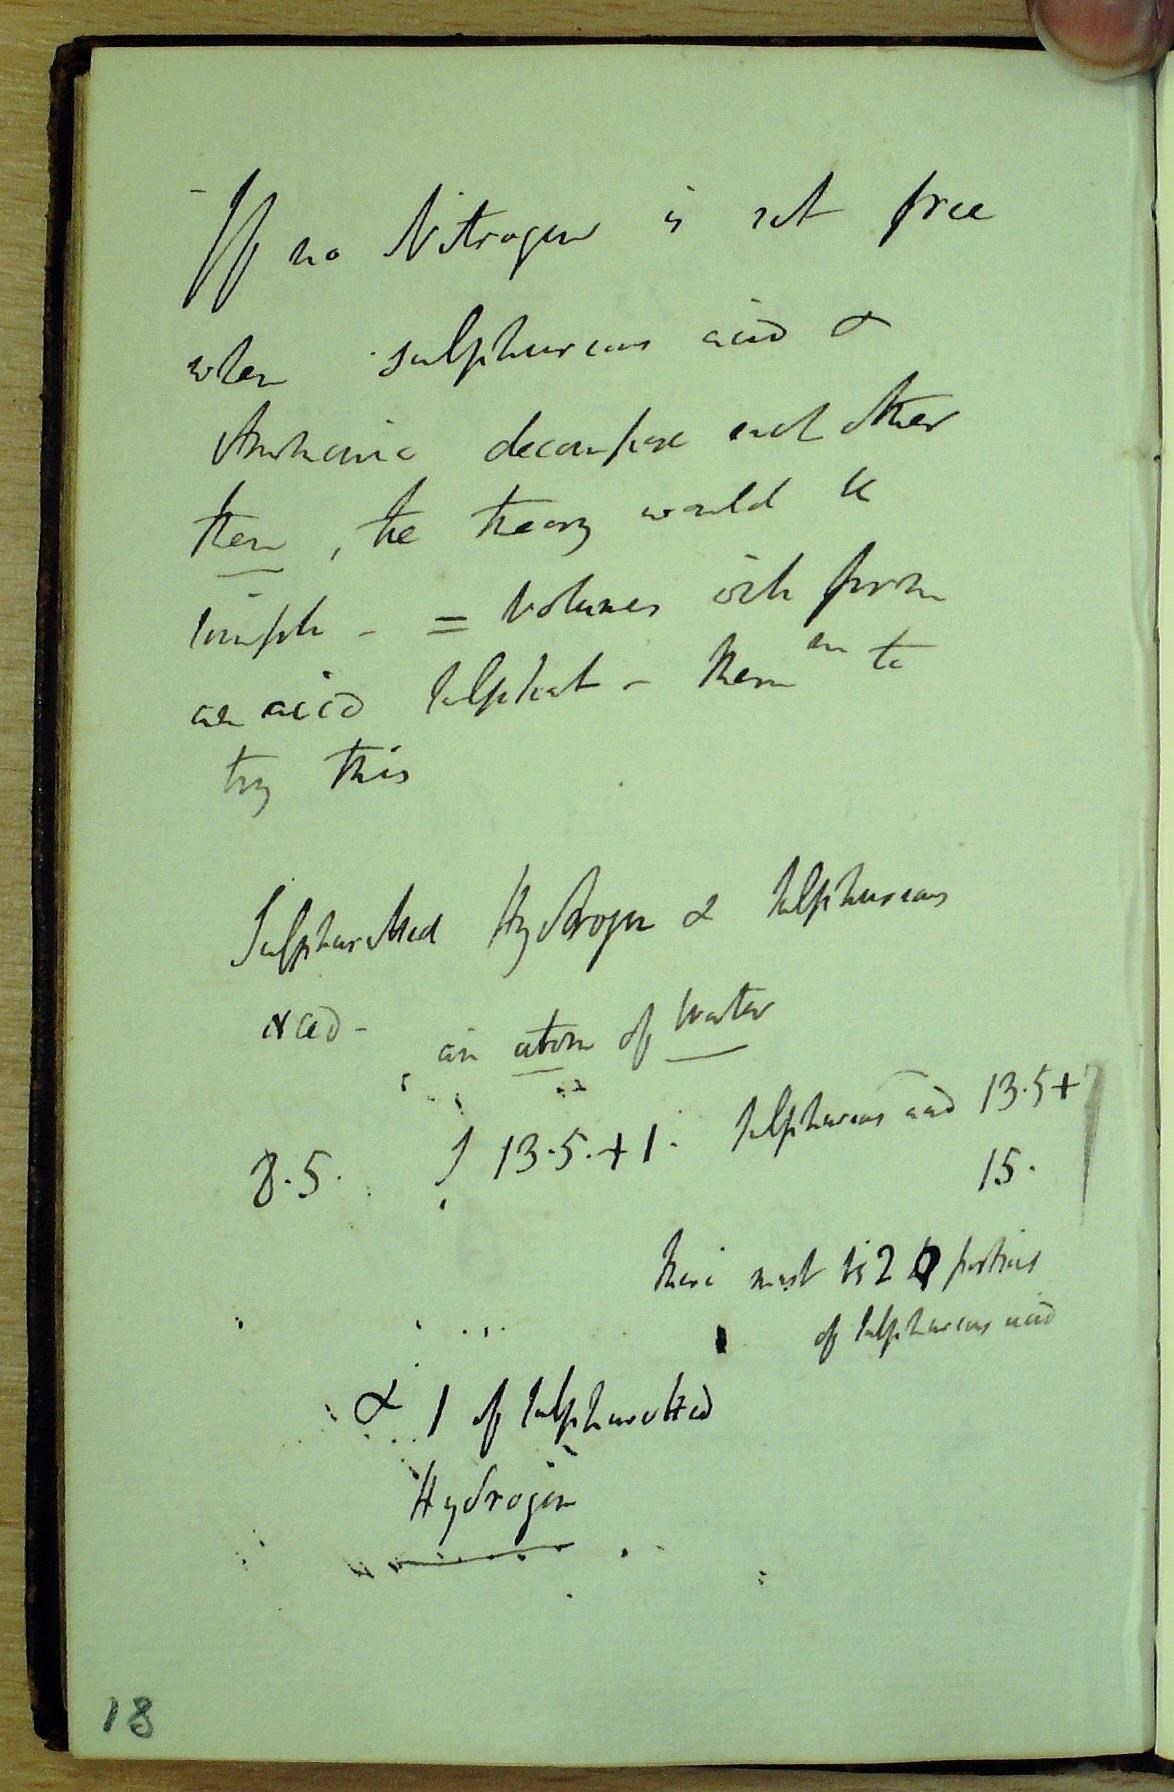 - If no Nitrogen is set free
when sulphureous acid &
Ammonia decompose each other
then, the theory would be
simple - = volumes wch form
an acid Sulphat - Mem m to
try this
Sulphuretted Hydrogen & Sulphureous
acid -
an atom of Water
8.5. S 13.5.+1. Sulphureous acid 13.5+
15.
there must be 2 portions
of Sulphureous acid
& 1 of Sulphuretted
Hydrogen
18